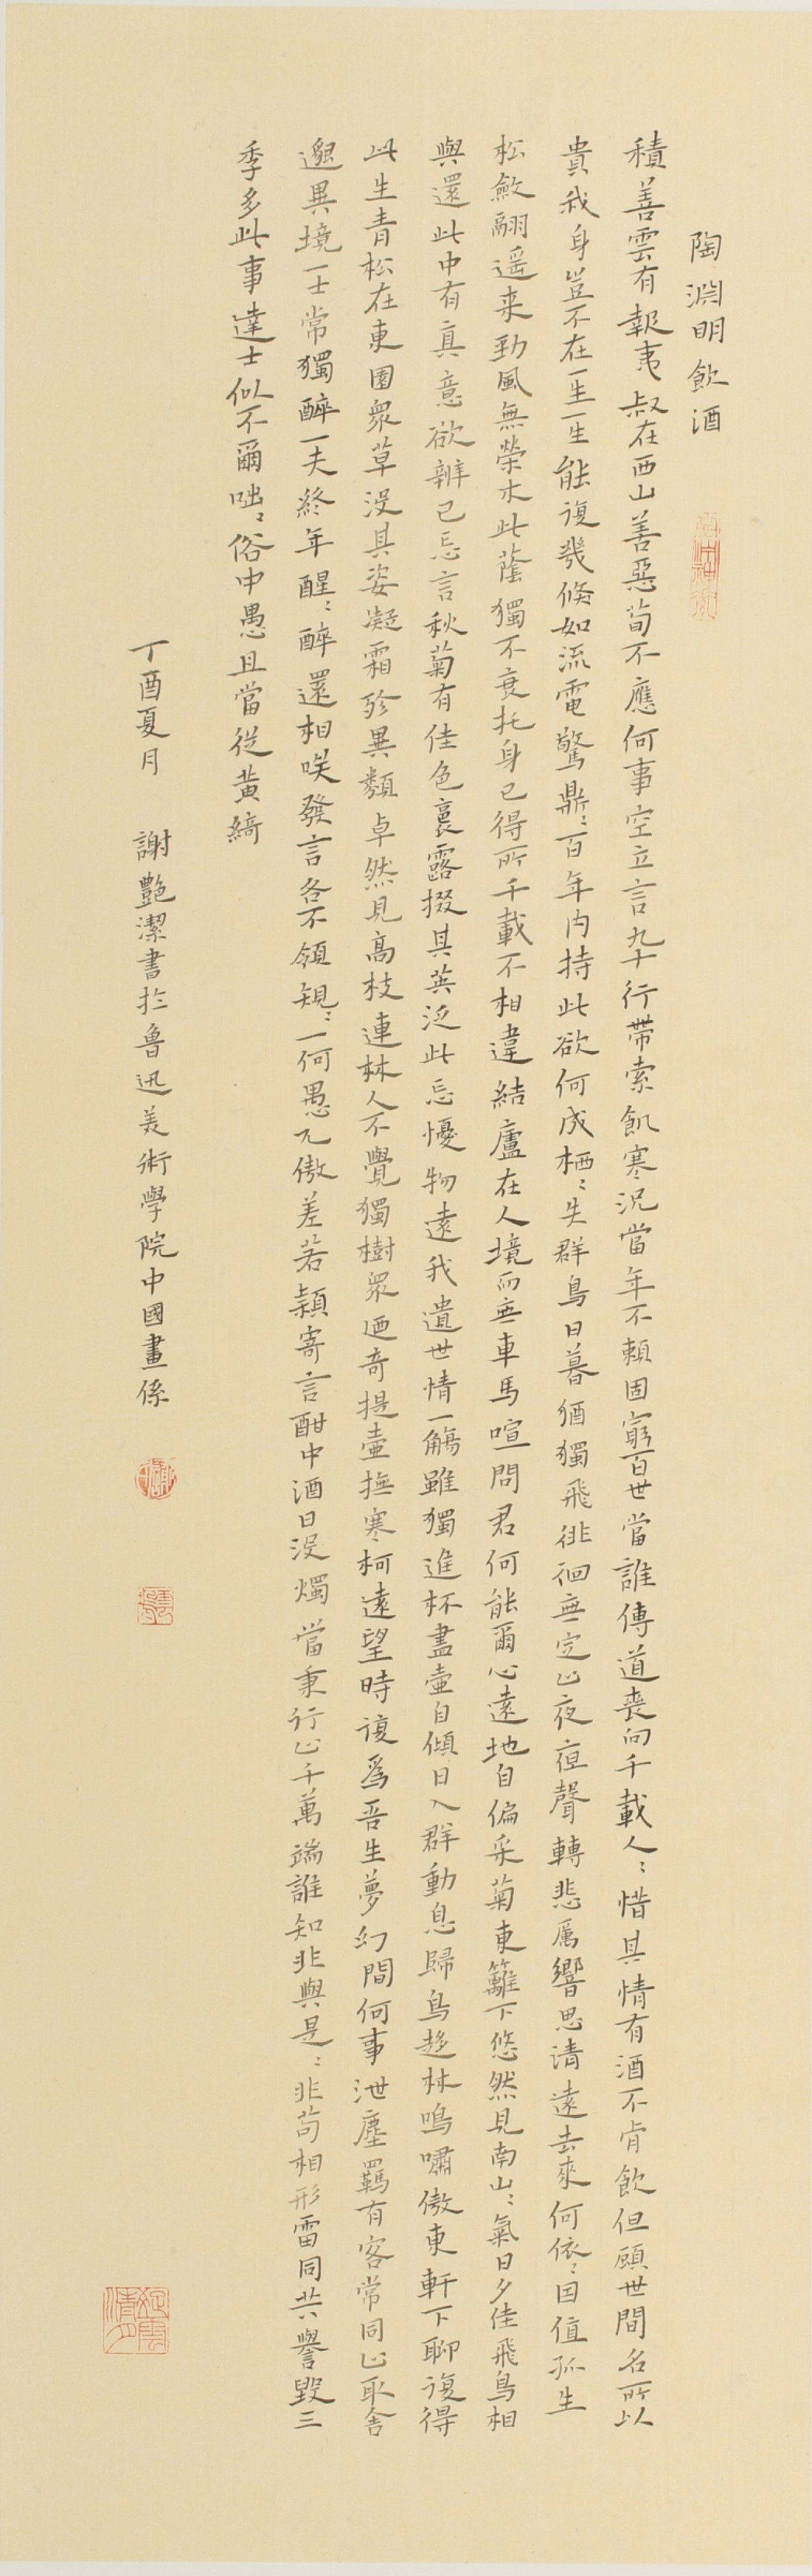 陶淵明飲酒
積善雲有報夷叔在西山善惡茍不應何事空立言九十行帶索飢寒況當年不賴固窮百世當誰傳道喪向千載人〻惜其情有酒不肯飲但顧世間名所以
貴我身豈不在一生一生能復幾倏如流電驚鼎〻百年內持此欲何成栖〻失群鳥日暮猶獨飛徘徊無定止夜夜聲轉悲厲響思清遠去來何依〻因值孤生
松斂翮遥来勁風無榮木此蔭獨不衰托身已得所千載不相違結廬在人境而無車馬喧問君何能爾心遠地自偏采菊東籬下悠然見南山〻氣日夕佳飛鳥相
與還此中有真意欲辨已忘言秋菊有佳色裛露掇其英泛此忘憂物遠我遺世情一觴雖獨進杯盡壺自傾日入群動息歸鳥趨林鳴嘯傲東軒下聊復得
此生青松在東園衆草没其姿凝霜殄異類卓然見高枝連林人不覺獨樹衆迺奇提壺撫寒柯遠望時復為吾生夢幻間何事泄塵羈有客常同止取舍
邈異境一士常獨醉一夫終年醒〻醉還相咲發言各不領規〻一何愚兀傲差若穎寄言酣中酒日没燭當秉行止千萬端誰知非與是〻非茍相形雷同共譽毀三
季多此事達士似不爾咄〻俗中愚且當從黄綺
丁酉夏月 謝艷潔書於魯迅美術學院中國畫係